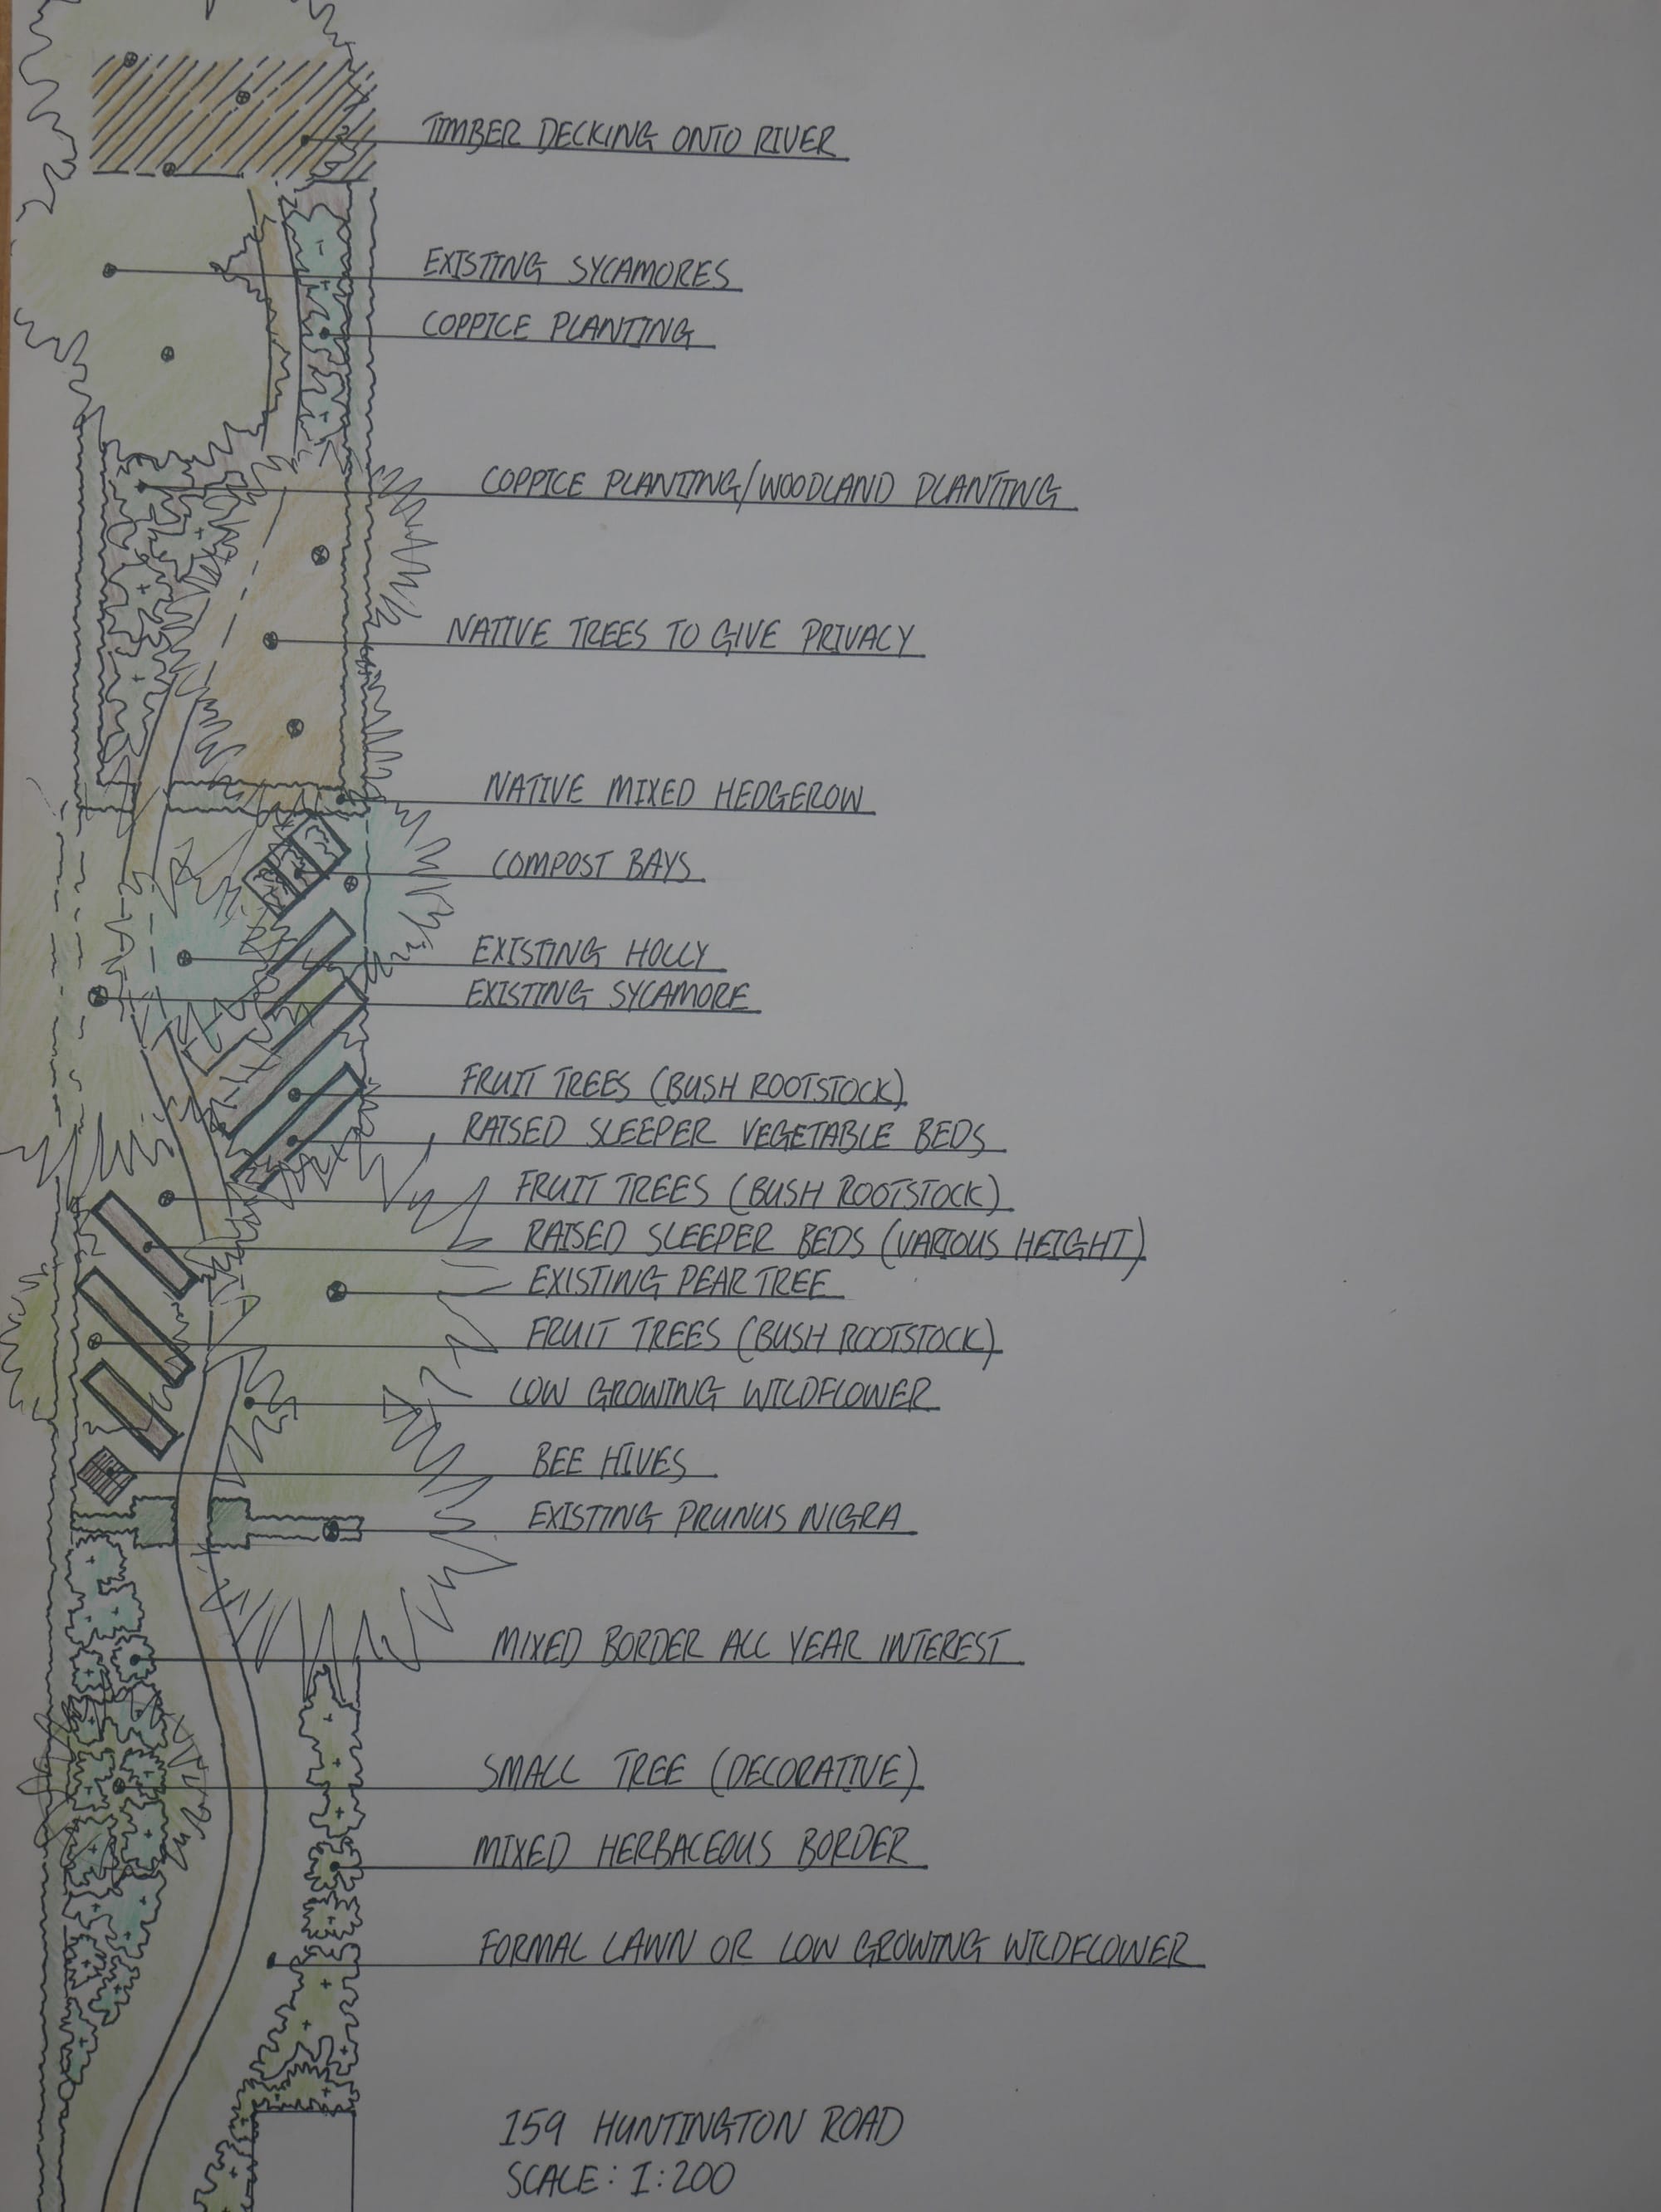 TIMBER DECKING ONTO RIVER
EXISTING SYCAMORES
COPPICE PLANTING
COPPICE PLANTING/WOODLAND PLANTING
NATIVE TREES TO GIVE PRIVACY
NATIVE MIXED HEDGEROW
COMPOST BAYS
EXISTING HOLLY
EXISTING SYCAMORE
FRUIT TREES (BUSH ROOTSTOCK)
RAISED SLEEPER VEGETABLE BEDS
FRUIT TREES (BUSH ROOTSTOCK)
RAISED SLEEPER BEDS (VARIOUS HEIGHT)
EXISTING PEAR TREE
FRUIT TREES (BUSH ROOTSTOCK)
LOW GROWING WILDFLOWER
BEE HIVES
EXISTING PRUNUS NIGRA
MIXED BORDER ALL YEAR INTEREST
SMALL TREE (DECORATIVE)
MIXED HERBACEOUS BORDER
FORMAL LAWN OR LOW GROWING WILDFLOWER
159 HUNTINGTON ROAD
SCALE: 1:200